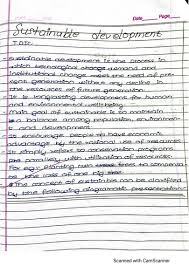 Date Page
Sustainable development
Sustainable development is the process in
which technological change demand and
institutional change meet the need of pre
sent generation without any decline in
the resources of future generation.
It is longlasting development for human
and environmental wellbeing
Main goal of sustainable is to maintain
a balance among population, environment
and development
It encourage people to have economic
advantage by the rational use of resources
It simply refers to conservation programs
goes parallely with utilization of resources
For eg: planting
the loss of one big tree
The concept of sustainable can be clarified
by the following diagramatic presentation
Scanned with CamScanner